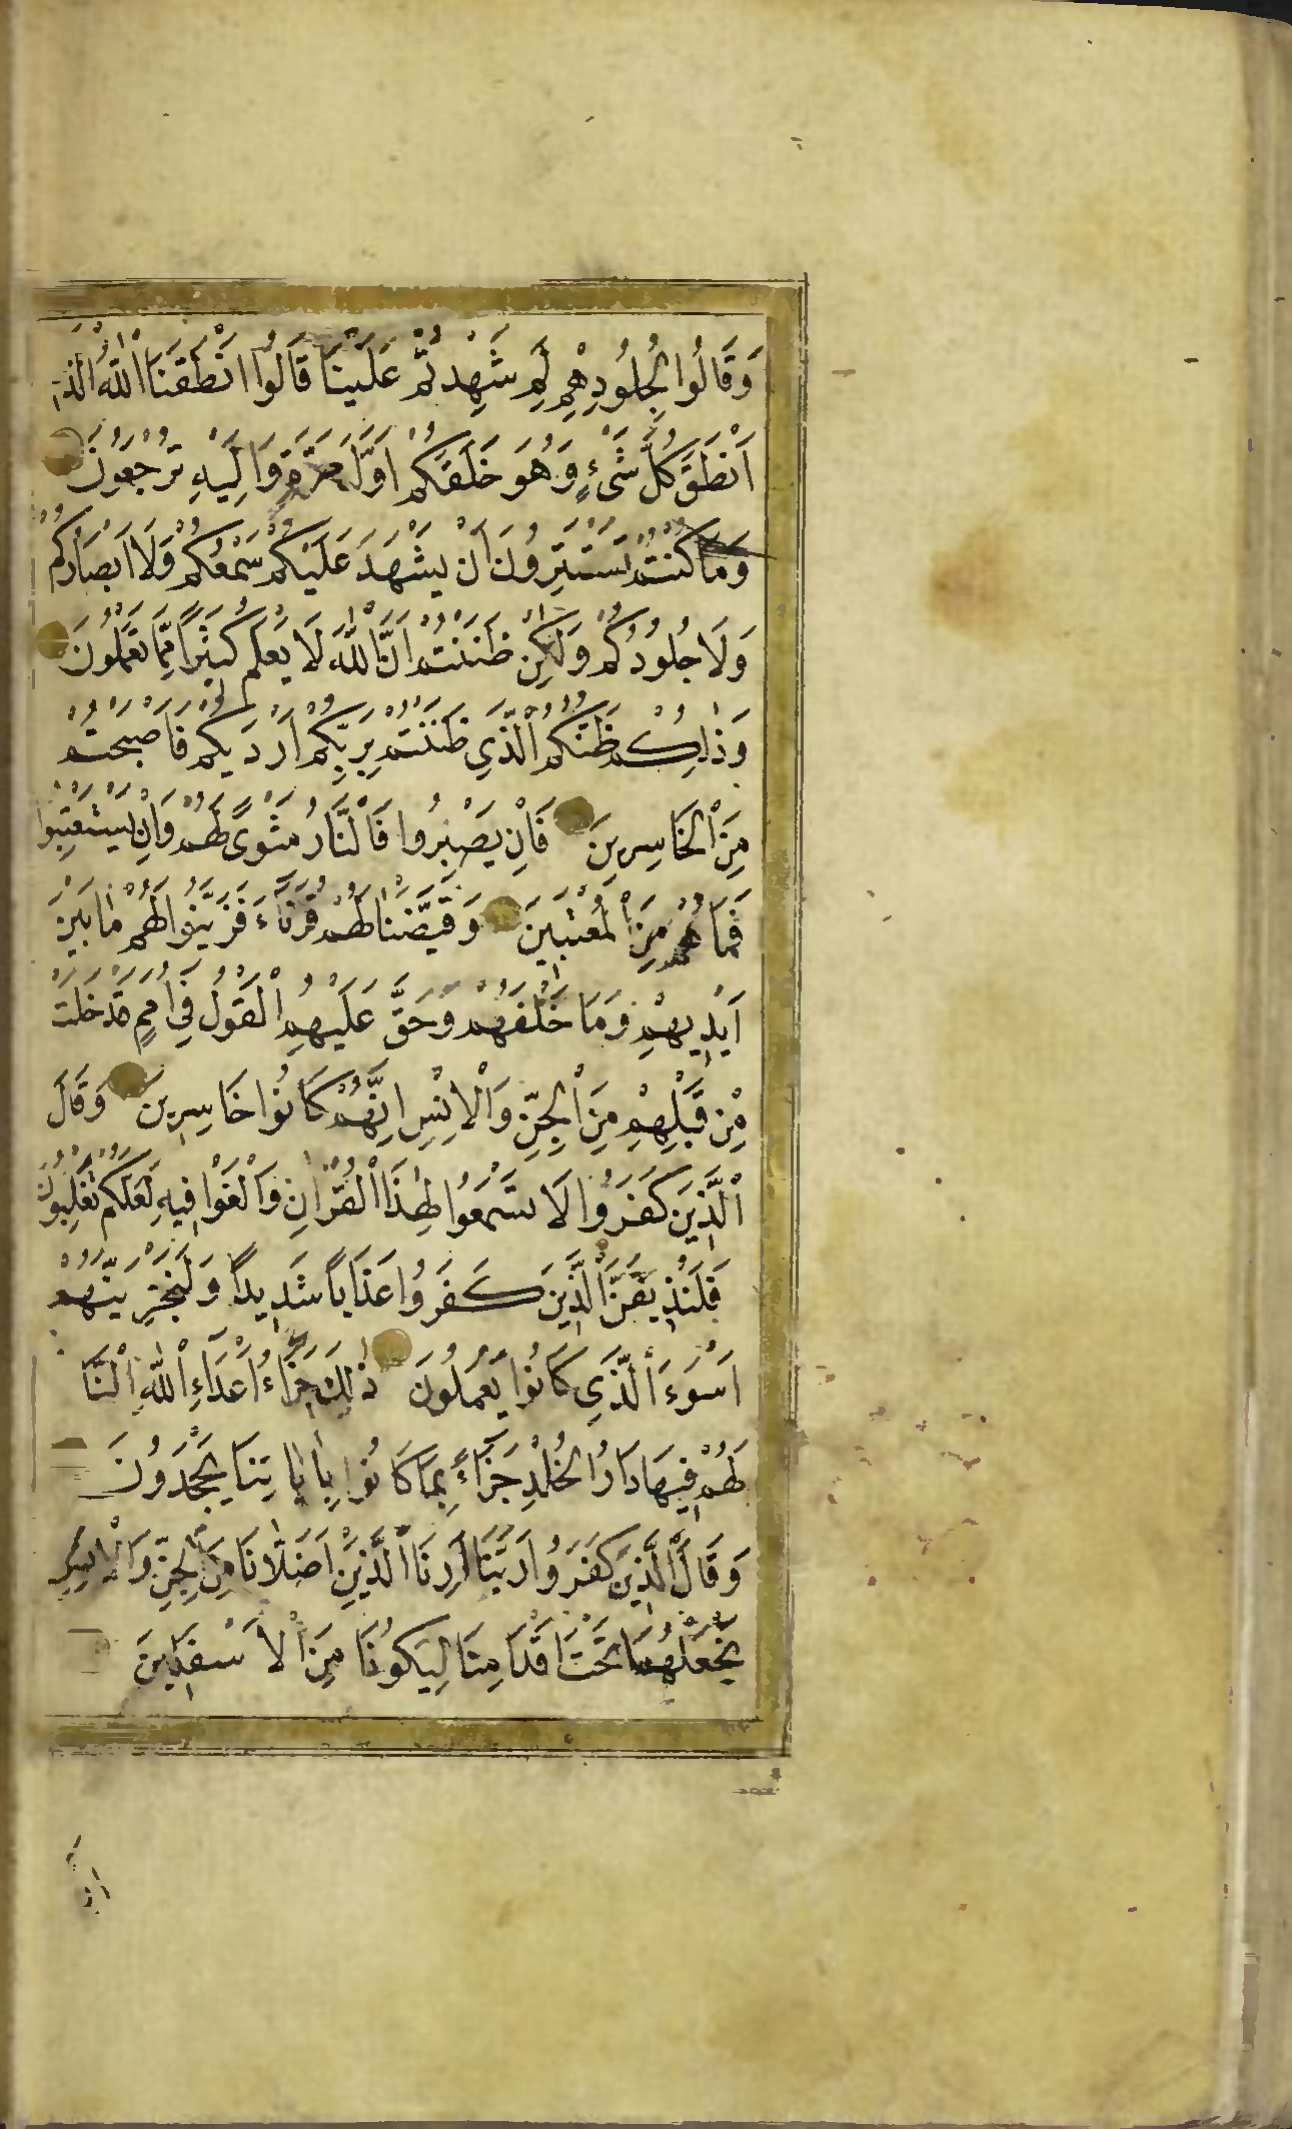 وَقَالُوا لِجُلُودِهِمْ لِمَ شَهِدْتُمْ عَلَيْنَا قَالُوا اَنْطَقَنَا اللّٰهُ الَّذِي
اَنْطَقَ كُلَّ شَيْءٍ وَهُوَ خَلَقَكُمْ اَوَّلَ مَرَّةٍ وَاِلَيْهِ تُرْجَعُونَ
وَمَا كُنْتُمْ تَسْتَتِرُونَ اَنْ يَشْهَدَ عَلَيْكُمْ سَمْعُكُمْ وَلَا اَبْصَارُكُمْ
وَلَا جُلُودُكُمْ وَلٰكِنْ ظَنَنْتُمْ اَنَّ اللّٰهَ لَا يَعْلَمُ كَثِيرًا مِمَّا تَعْمَلُونَ
وَذٰلِكُمْ ظَنُّكُمُ الَّذِي ظَنَنْتُمْ بِرَبِّكُمْ اَرْدٰيكُمْ فَاَصْبَحْتُمْ
مِنَ الْخَاسِرِينَ فَاِنْ يَصْبِرُوا فَالنَّارُ مَثْوًى لَهُمْ وَاِنْ يَسْتَعْتِبُوا
فَمَا هُمْ مِنَ الْمُعْتَبِينَ وَقَيَّضْنَا لَهُمْ قُرَنَاءَ فَزَيَّنُوا لَهُمْ مَا بَيْنَ
اَيْدِيهِمْ وَمَا خَلْفَهُمْ وَحَقَّ عَلَيْهِمُ الْقَوْلُ فِي اُمَمٍ قَدْ خَلَتْ
مِنْ قَبْلِهِمْ مِنَ الْجِنِّ وَالْاِنْسِ اِنَّهُمْ كَانُوا خَاسِرِينَ وَقَالَ
الَّذِينَ كَفَرُوا لَا تَسْمَعُوا لِهٰذَا الْقُرْاٰنِ وَالْغَوْا فِيهِ لَعَلَّكُمْ تَغْلِبُونَ
فَلَنُذِيقَنَّ الَّذِينَ كَفَرُوا عَذَابًا شَدِيدًا وَلَنَجْزِيَنَّهُمْ
اَسْوَءَ الَّذِي كَانُوا يَعْمَلُونَ ذٰلِكَ جَزَاءُ اَعْدَاءِ اللّٰهِ النَّا
لَهُمْ فِيهَا دَارُ الْخُلْدِ جَزَاءً بِمَا كَانُوا بِاٰيَاتِنَا يَجْحَدُونَ
وَقَالَ الَّذِينَ كَفَرُوا رَبَّنَا اَرِنَا الَّذَيْنِ اَضَلَّانَا مِنَ الْجِنِّ وَالْاِنْسِ
نَجْعَلْهُمَا تَحْتَ اَقْدَامِنَا لِيَكُونَا مِنَ الْاَسْفَلِينَ